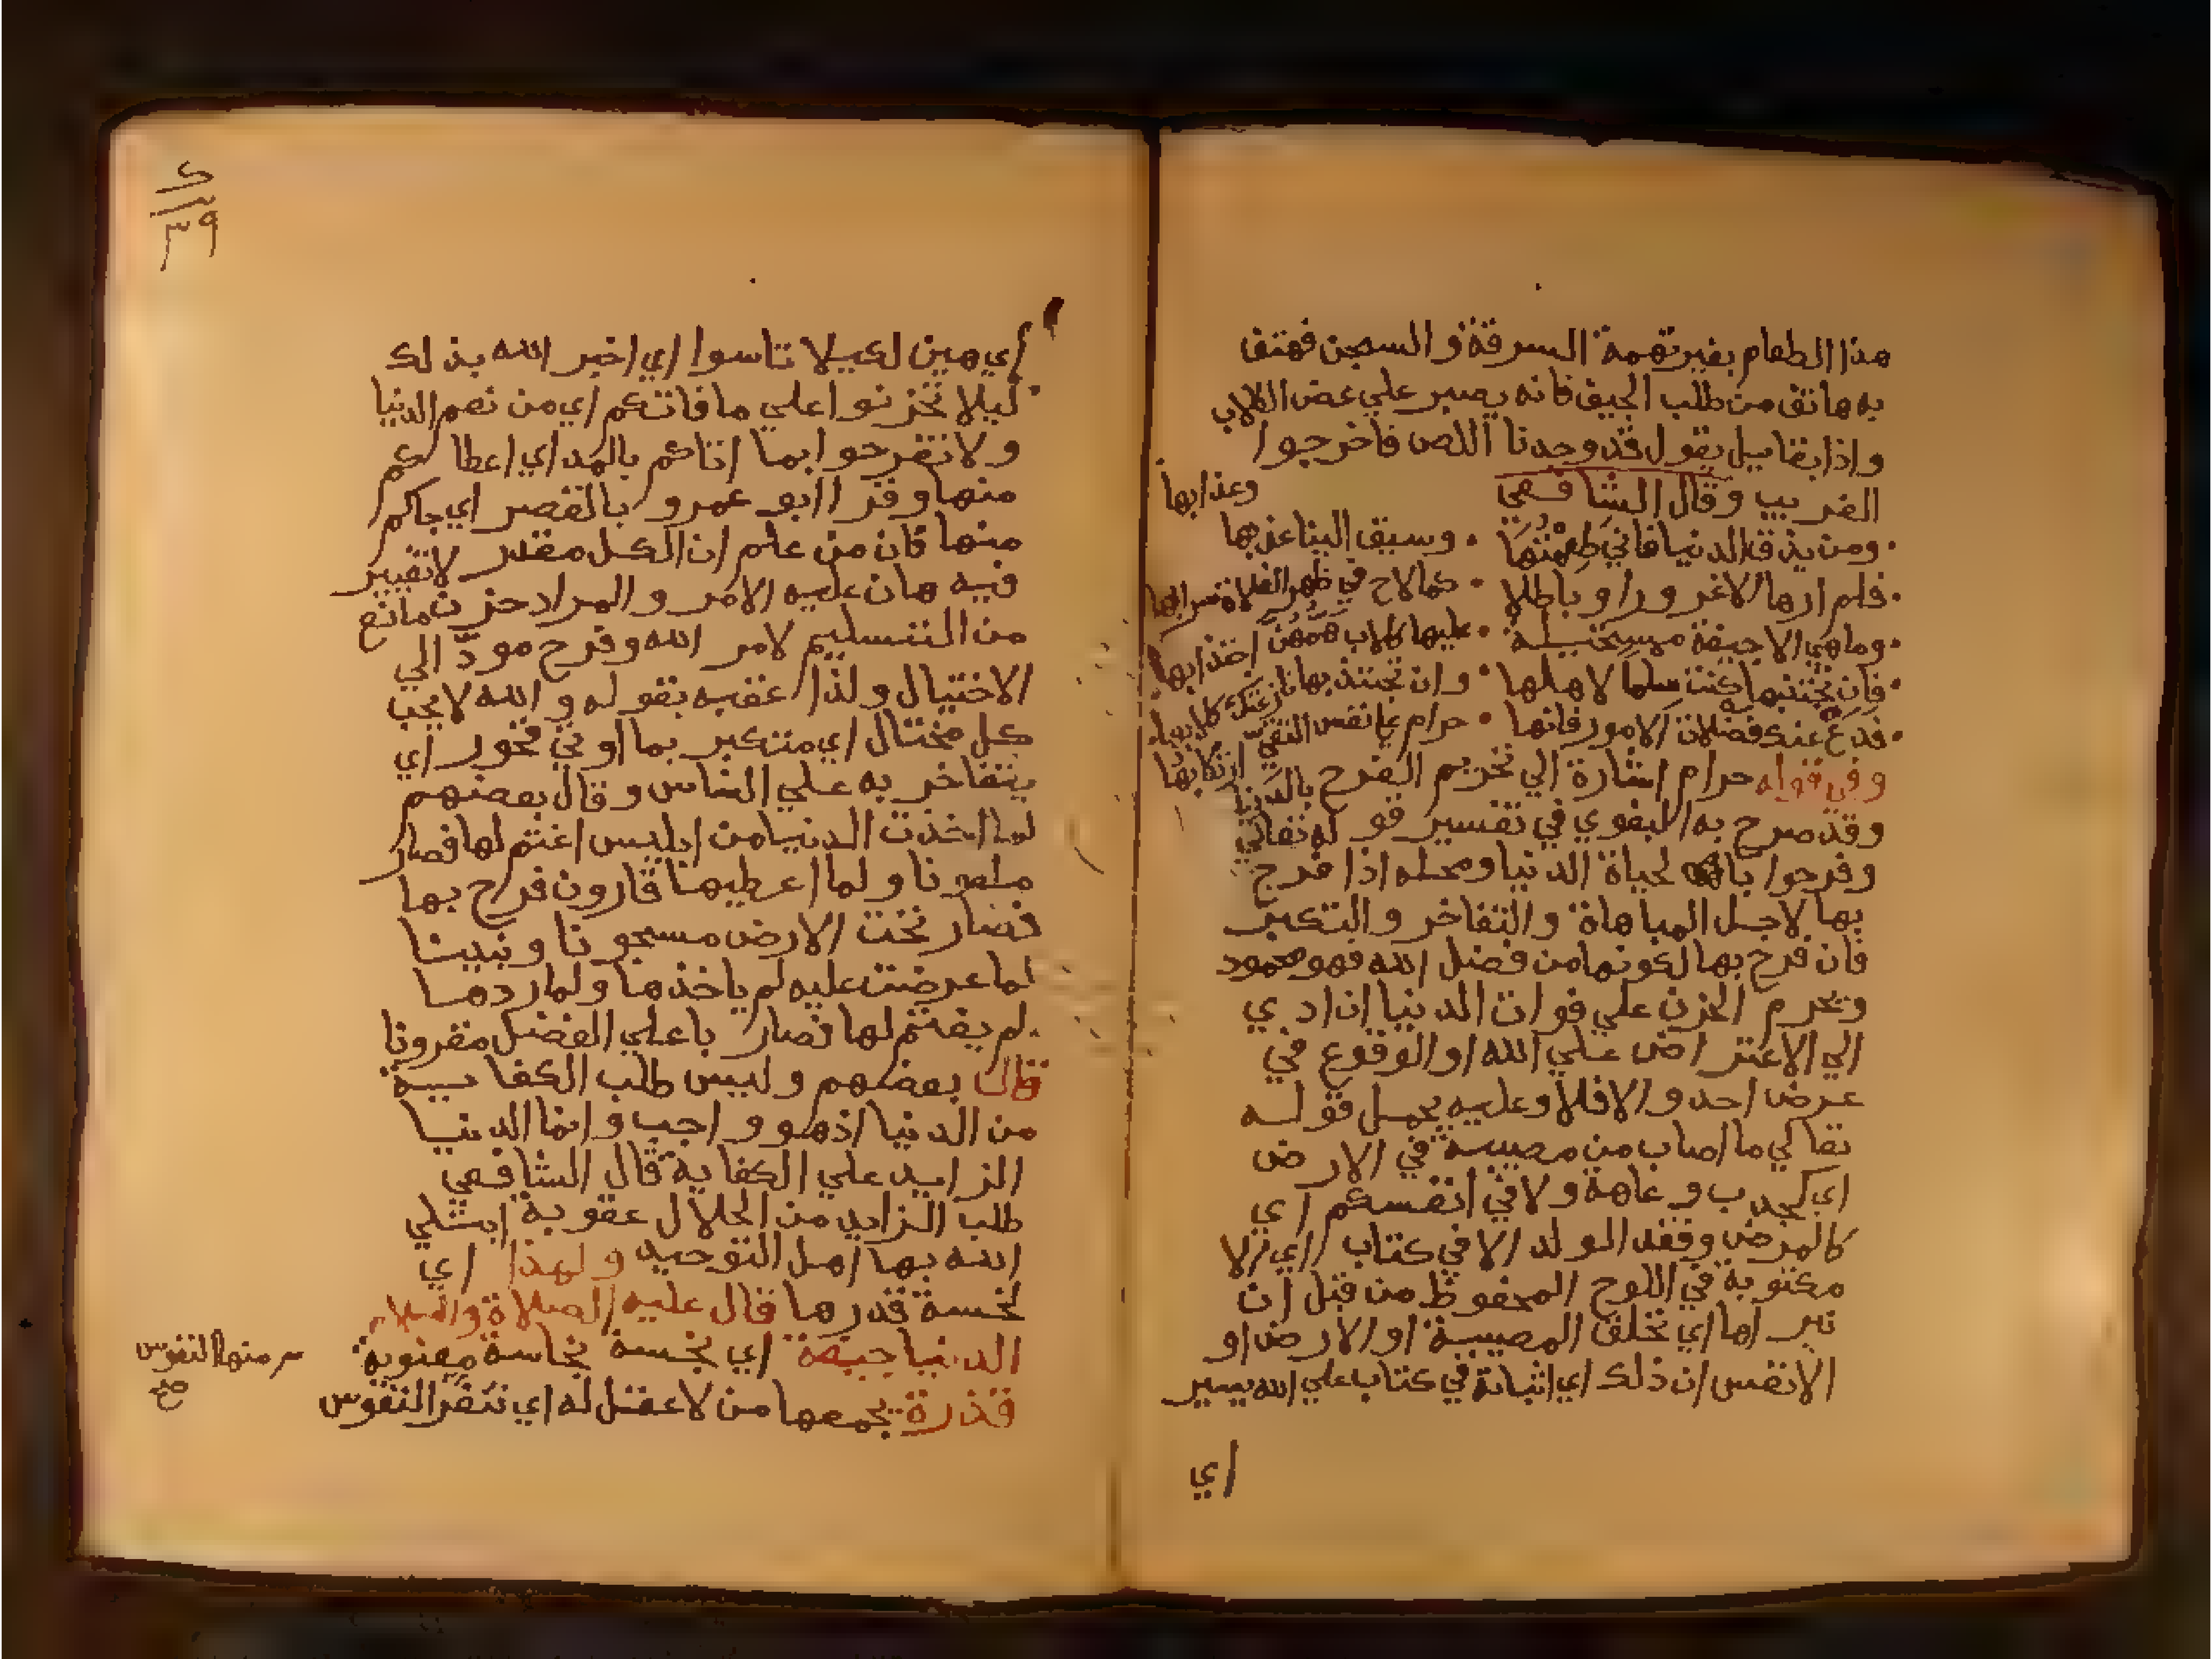 هذا الطعام بغير تهمة السرقة والسجن فهتف
به هاتف من طلب الجيف فانه يصبر علي عض الكلاب
واذا بقايل يقول قد وجدنا اللص فاخرجوا
الغريب وقال الشافعي
ومن يذق الدنيا فاني طعمتها • وسيق الينا عذبها وعذابها
فلم ارها الا غرورا وباطلا • كما لاح في ظهر الفلاة سرابها
وما هي الا جيفة مستحيلة • عليها كلاب همهن اجتذابها
فان تجتنبها كنت سلما لاهلها • وان تجتذبها نازعتك كلابها
فدع عنك فضلات الامور فانها • حرام علي نفس التقي ارتكابها
وفي قوله حرام اشارة الي تحريم الفرح بالدنيا
وقد صرح به البغوي في تفسير قوله تعالي
وفرحوا بالحياة الدنيا ومحله اذا فرح
بها لاجل المباهاة والتفاخر والتكبر
فان فرح بها لكونها من فضل الله فهو محمود
ويحرم الحزن علي فوات الدنيا ان ادي
الي الاعتراض علي الله او الوقوع في
عرض احد والا فلا وعليه يحمل قوله
تعالي ما اصاب من مصيبة في الارض
اي كجدب وعاهة ولا في انفسكم اي
كالمرض وفقد الولد الا في كتاب اي الا
مكتوبة في اللوح المحفوظ من قبل ان
نبراها اي نخلق المصيبة او الارض او
الانفس ان ذلك اي اثباته في كتاب علي الله يسير
اي
٣٩
اي هين لكيلا تاسوا اي اخبر الله بذلك
ليلا تحزنوا علي ما فاتكم اي من نعم الدنيا
ولا تفرحوا بما اتاكم بالمد اي اعطاكم
منها وقرا ابو عمرو بالقصر اي جاكم
منها فان من علم ان الكل مقدر لا تغيير
فيه هان عليه الامر والمراد حزن مانع
من التسليم لامر الله وفرح مود الي
الاختيال ولذا عقبه بقوله والله لا يحب
كل مختال اي متكبر بما اوتي فخور اي
يتفاخر به علي الناس وقال بعضهم
لما اخذت الدنيا من ابليس اغتم لها فصار
ملعونا ولما اعطيها قارون فرح بها
فصار تحت الارض مسجونا ونبينا
لما عرضت عليه لم ياخذها ولما ردها
لم يغتم لها فصار باعلي الفضل مقرونا
قال بعضهم وليس طلب الكفاية
من الدنيا اذ هو واجب وانما الدنيا
الزايد علي الكفاية قال الشافعي
طلب الزايد من الحلال عقوبة ابتلي
الله بها اهل التوحيد ولهذا اي
لخسة قدرها قال عليه الصلاة والسلام
الدنيا جيفة اي نجسة نجاسة معنوية
قذرة يجمعها من لا عقل له اي تنفر النفوس
منها النفوس
صح